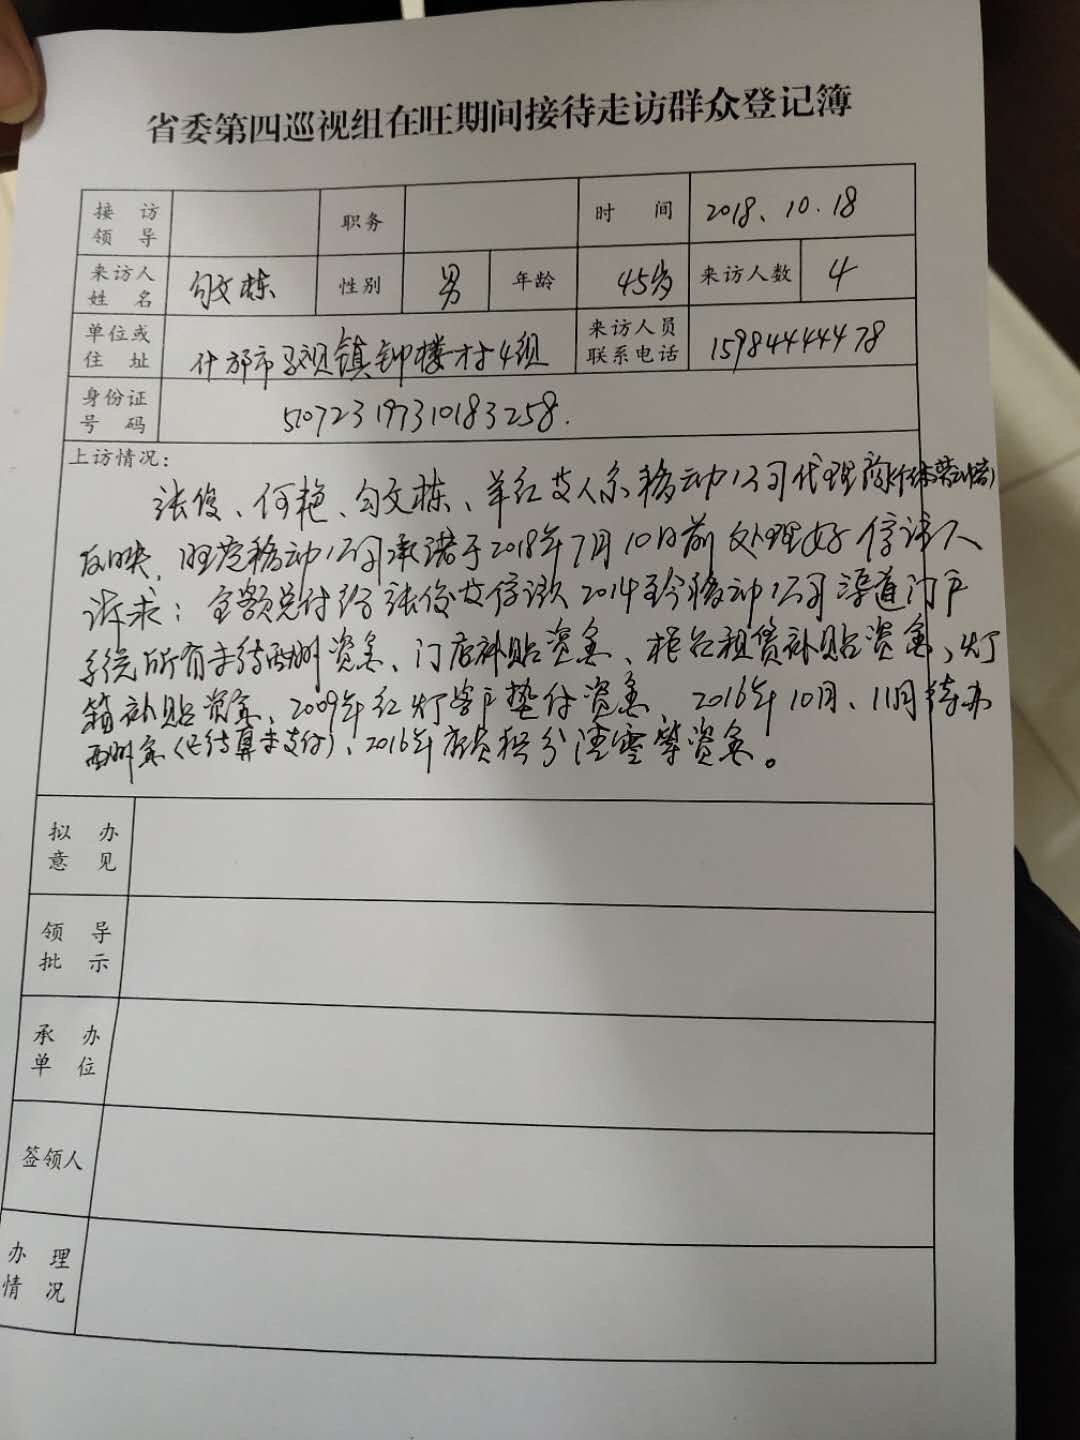 省委第四巡视组在旺期间接待走访群众登记簿
接访领导 职务 时间 2018.10.18
来访人姓名 勾文栋 性别 男 年龄 45岁 来访人数 4
单位或住址 什邡市 镇钟楼村4组 来访人员联系电话 15984444478
身份证号码 510723197310183258.
上访情况：
张俊、何艳、勾文栋、羊红艾人系移动公司代理商
反映，旺苍移动公司承诺于2018年7月10日前处理好信访人
诉求：全额兑付给张俊艾信访人2014至今移动公司渠道门户
系统所有未结酬资金、门店补贴资金、柜台租赁补贴资金、灯
箱补贴资金、2009年红灯客户垫付资金、2016年10月、11月待办
酬金(已结算未支付)、2016年店员积分清零等资金。
拟办意见
领导批示
承办单位
签领人
办理情况